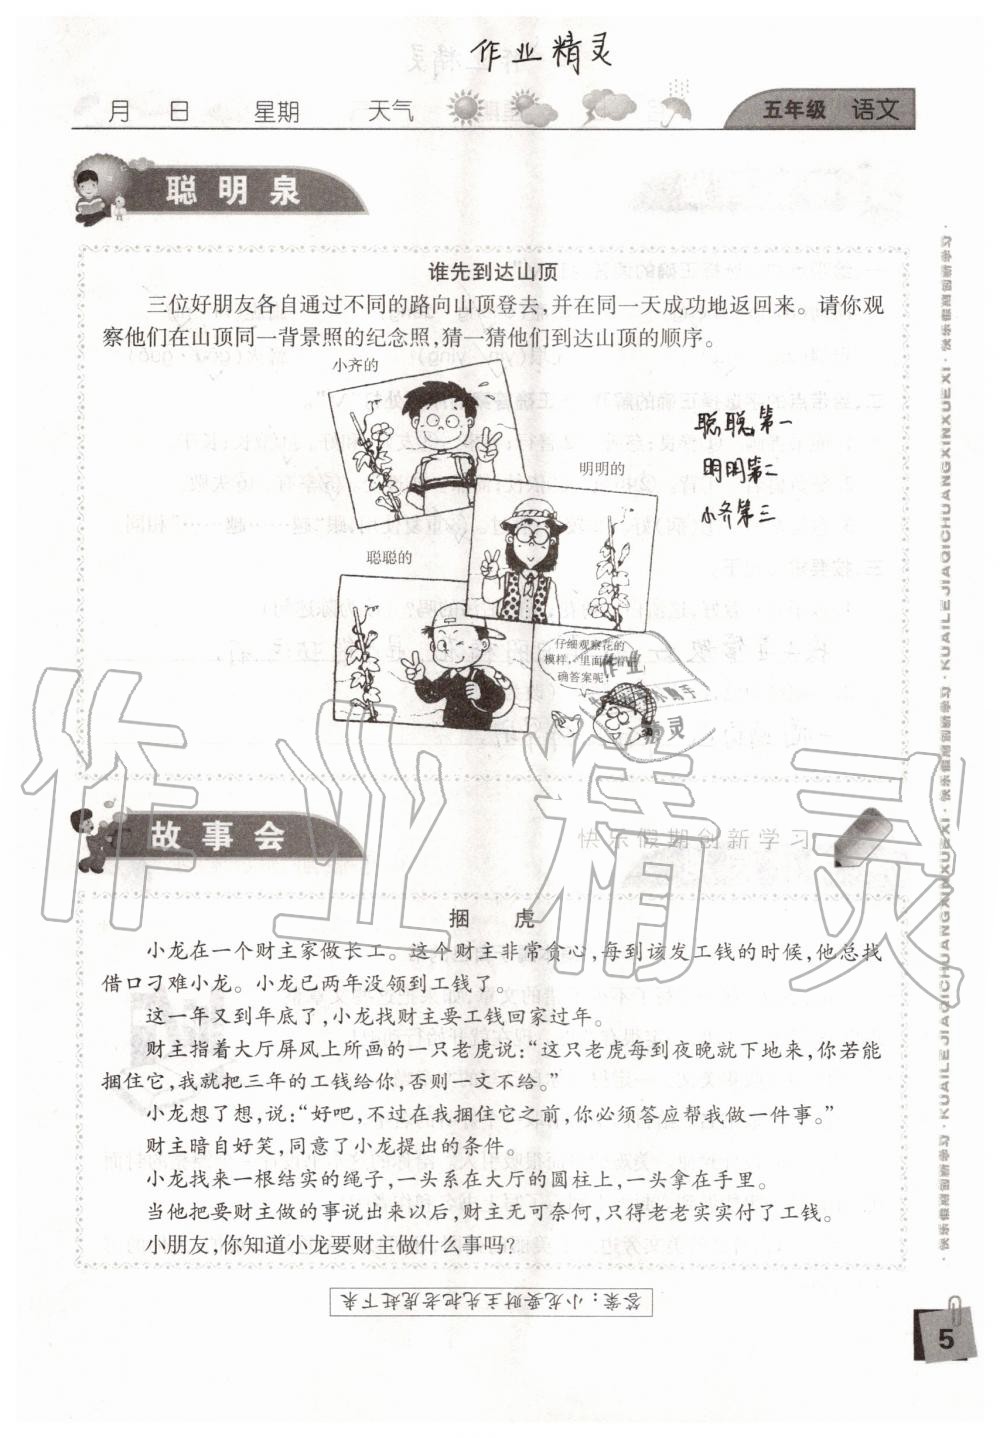 作业精灵
月 日 星期 天气 五年级 语文
聪明泉
谁先到达山顶
三位好朋友各自通过不同的路向山顶登去,并在同一天成功地返回来。请你观
察他们在山顶同一背景照的纪念照,猜一猜他们到达山顶的顺序。
小齐的
聪聪第一
明明的
明明第二
小齐第三
聪聪的
仔细观察花的
确答案呢!
故事会
快乐假期创新学习
捆 虎
小龙在一个财主家做长工。这个财主非常贪心,每到该发工钱的时候,他总找
借口刁难小龙。小龙已两年没领到工钱了。
这一年又到年底了,小龙找财主要工钱回家过年。
财主指着大厅屏风上所画的一只老虎说:“这只老虎每到夜晚就下地来,你若能
捆住它,我就把三年的工钱给你,否则一文不给。”
小龙想了想,说:“好吧,不过在我捆住它之前,你必须答应帮我做一件事。”
财主暗自好笑,同意了小龙提出的条件。
小龙找来一根结实的绳子,一头系在大厅的圆柱上,一头拿在手里。
当他把要财主做的事说出来以后,财主无可奈何,只得老老实实付了工钱。
小朋友,你知道小龙要财主做什么事吗?
答案:小龙要财主先把老虎赶下来
·快乐假期创新学习·KUAILE JIAQICHUANGXINXUEXI·快乐假期创新学习·KUAILE JIAQICHUANGXINXUEXI·快乐假期创新学习·KUAILE JIAQICHUANGXINXUEXI·快乐假期创新学习·
5
作业精灵